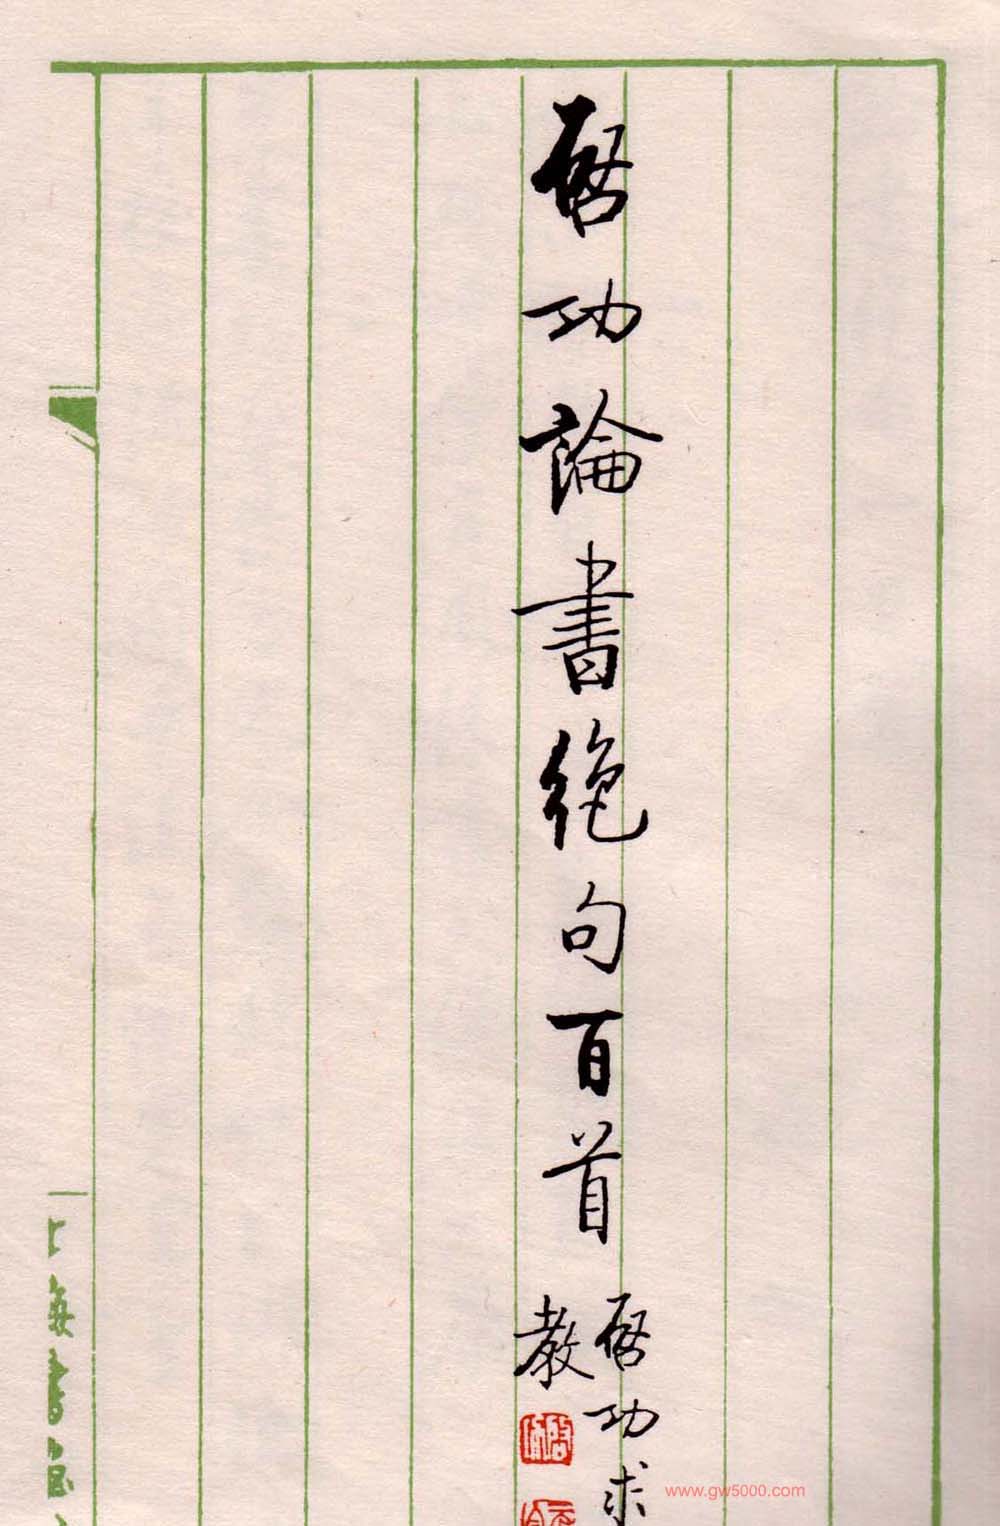 啓功論書絕句百首
啓功求
教
上海書
www.gw5000.com